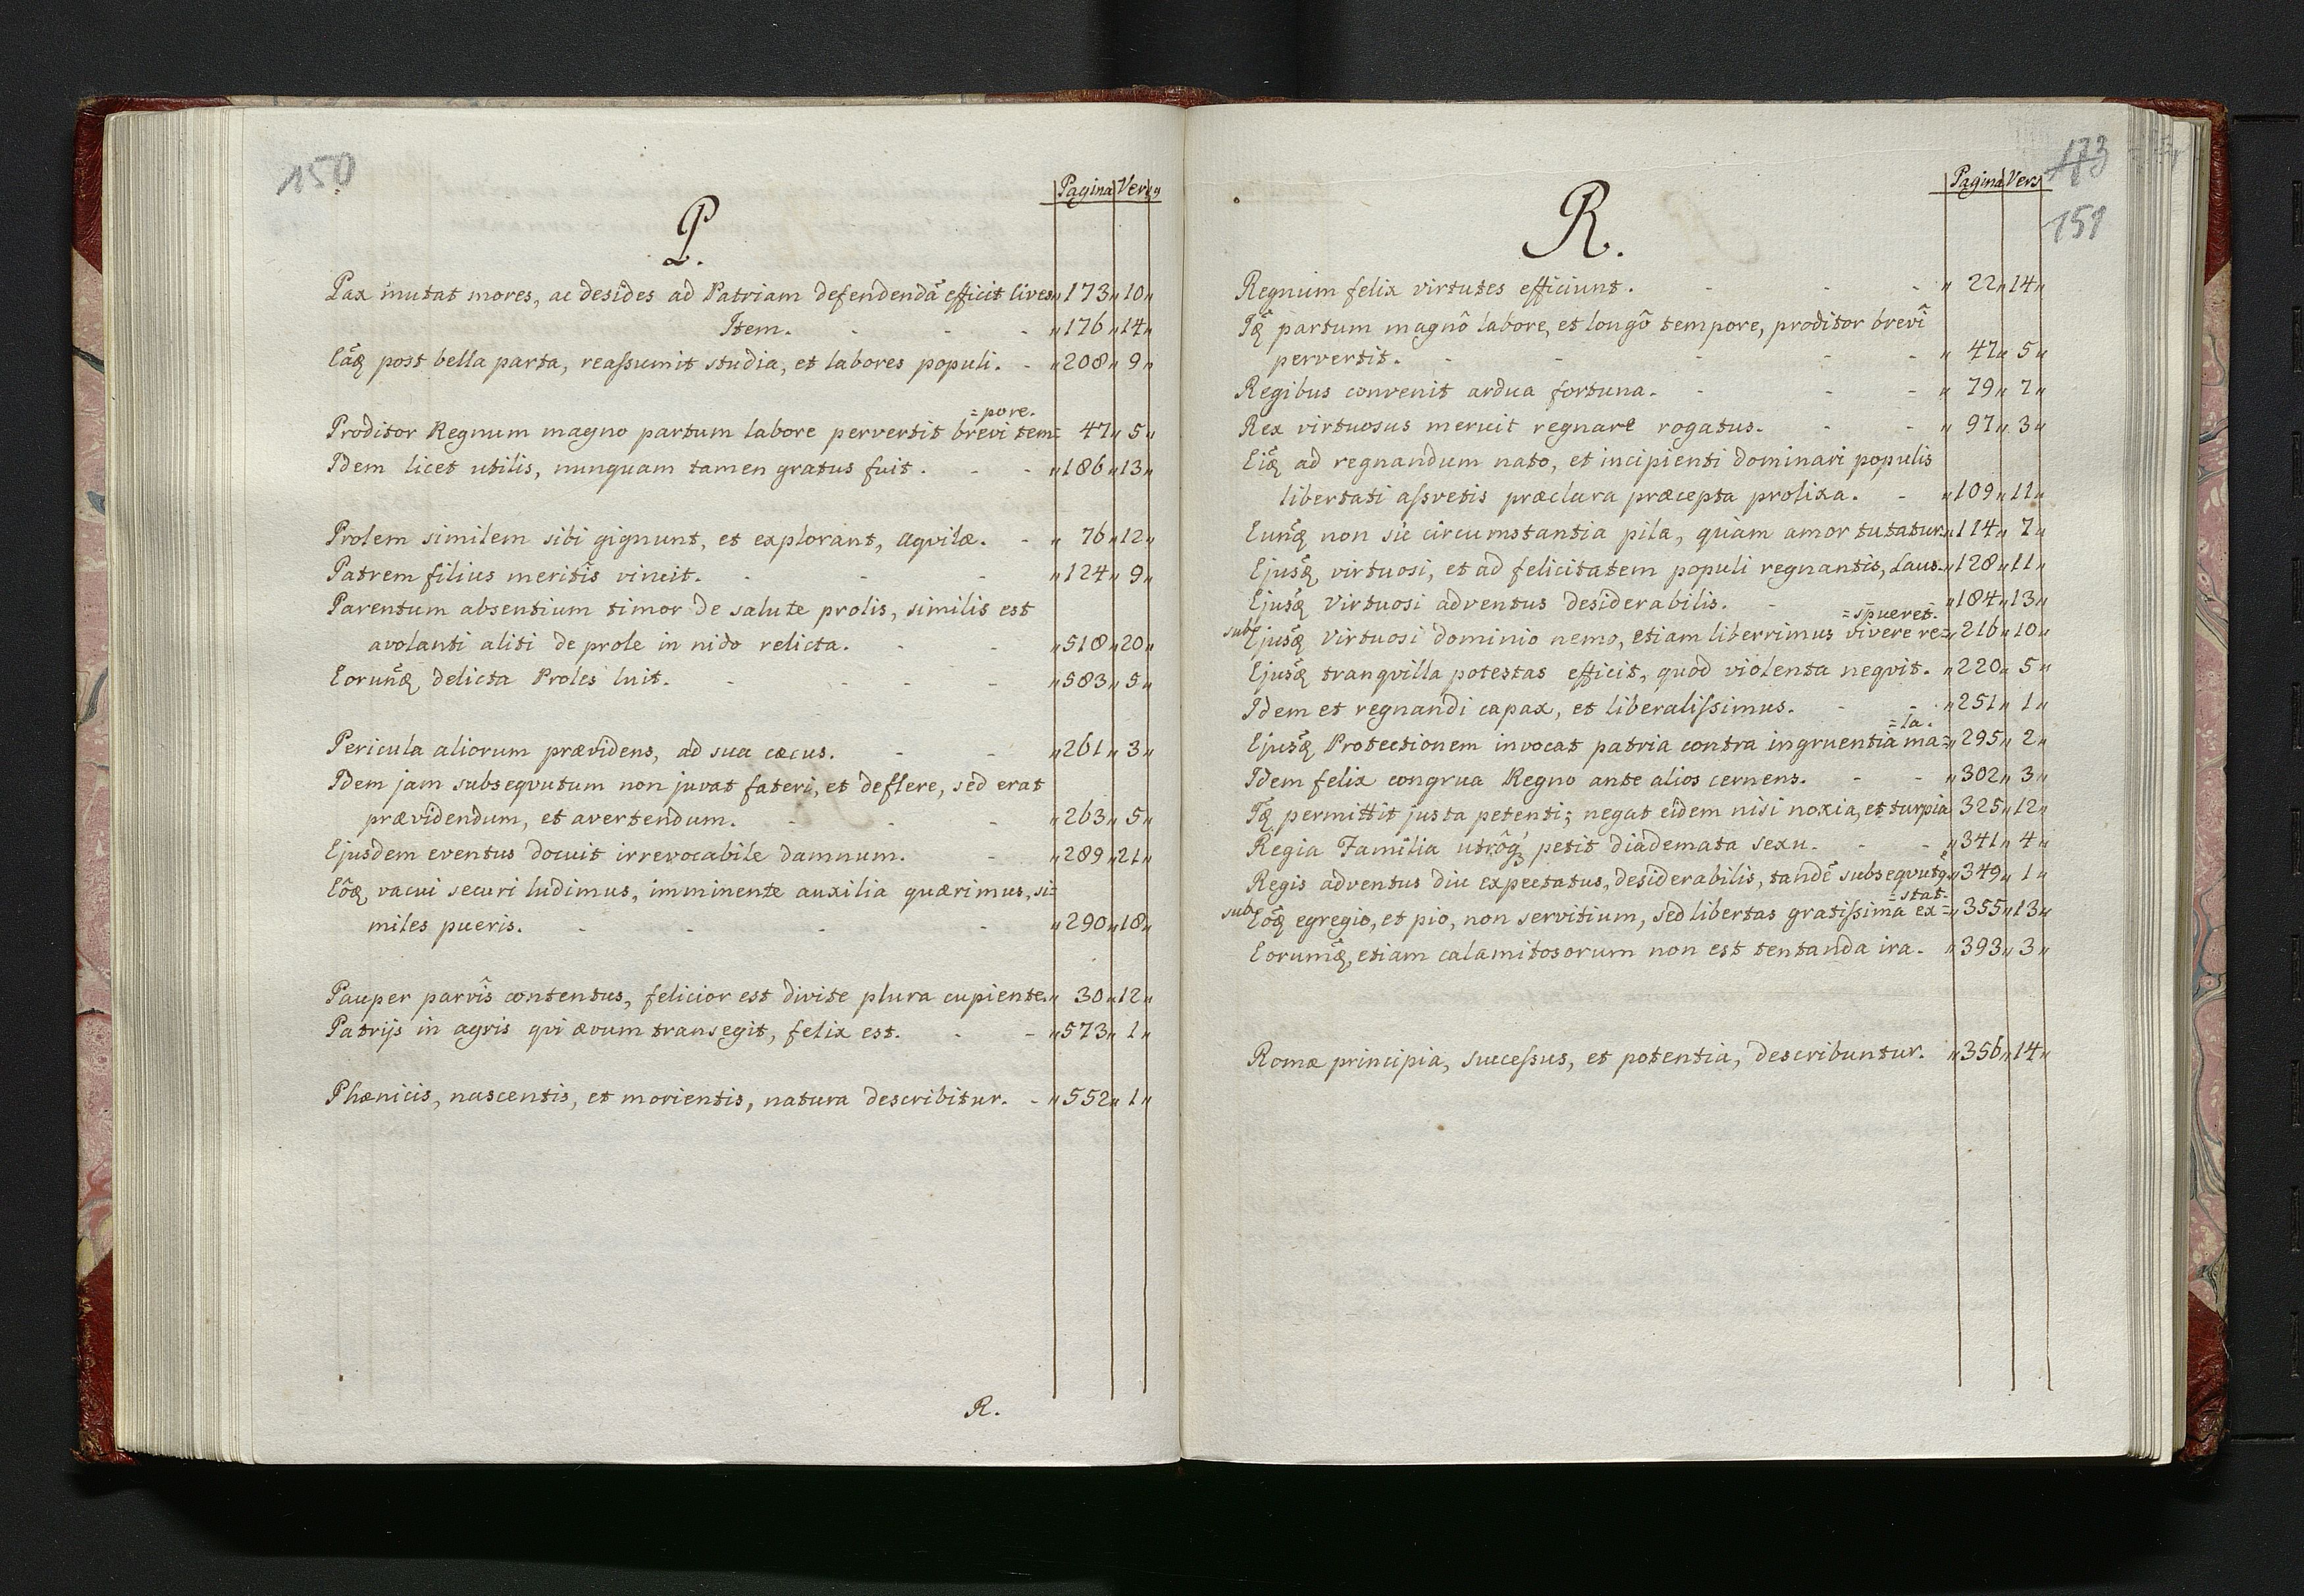 150
Pagina Versꝰ
P.
Pax mutat mores, ac desides ad Patriam defendendā efficit cives „173„10„
Item. - - - „176„14„
Eādē post bella parta, reaſsumit studia, et labores populi. - „208„9„
=pore.
Proditor Regnum magno partum labore pervertit brevi tem= 47„5„
Idem licet utilis, nunquam tamen gratus fuit. - - „186„13„
Prolem similem sibi gignunt, et explorant, aqvilæ. - „76„12„
Patrem filius meritîs vincit. - - - „124„9„
Parentum absentium timor de salute prolis, similis est
avolanti aliti de prole in nido relicta. - - „518„20„
delicta Proles luit. - - - - „583„5„
Pericula aliorum prævidens, ad sua cæcus. - - „261„3„
Idem jam subseqvutum non juvat fateri, et deflere, sed erat
prævidendum, et avertendum. - - - „263„5„
Ejusdem eventus docuit irrevocabile damnum. - „289„21„
vacui securi ludimus, imminente auxilia quærimus, si=
miles pueris. - - - - „290„18„
Pauper parvîs contentus, felicior est divite plura cupiente. „30„12„
Patrijs in agris qvi ævum transegit, felix est. - - „573„1„
Phænicis, nascentis, et morientis, natura describitur. - „552„1„
R.
173
151
Pagina Vers
R.
Regnum felix virtutes efficiunt. - - - „22„14„
partum magnô labore, et longô tempore, proditor brevî
pervertit. - - - - - „47„5„
Regibus convenit ardua fortuna. - - - „79„7„
Rex virtuosus meruit regnare rogatus. - - „97„3„
ad regnandum nato, et incipienti dominari populis
libertati aſsvetis præclara præcepta prolixa. - „109„11„
non sic circumstantia pila, quàm amor tutatur. „114„7„
virtuosi, et ad felicitatem populi regnantis, Laus. „128„11„
Virtuosi adventus desiderabilis. - „184„13„
=spueret.
sub Virtuosi dominio nemo, etiam liberrimus vivere re= „216„10„
tranqvilla potestas efficit, quod violenta neqvit. „220„5„
Idem et regnandi capax, et liberaliſsimus. - - „251„1„
=la.
Protectionem invocat patria contra ingruentia ma= „295„2„
Idem felix congrua Regno ante alios cernens. - - „302„3„
permittit justa petenti; negat eidem nisi noxia, et turpia 325„12„
Regia Familia utrôqꝫ petit diademata sexu. - - „341„4„
Regis adventus diu expectatus, desiderabilis, tandē subseqvutꝰ „349„1„
=stat.
sub egregio, et pio, non servitium, sed libertas gratiſsima ex= „355„13„
etiam calamitosorum non est tentanda ira. „393„3„
Romæ principia, succeſsus, et potentia, describuntur. „356„14„